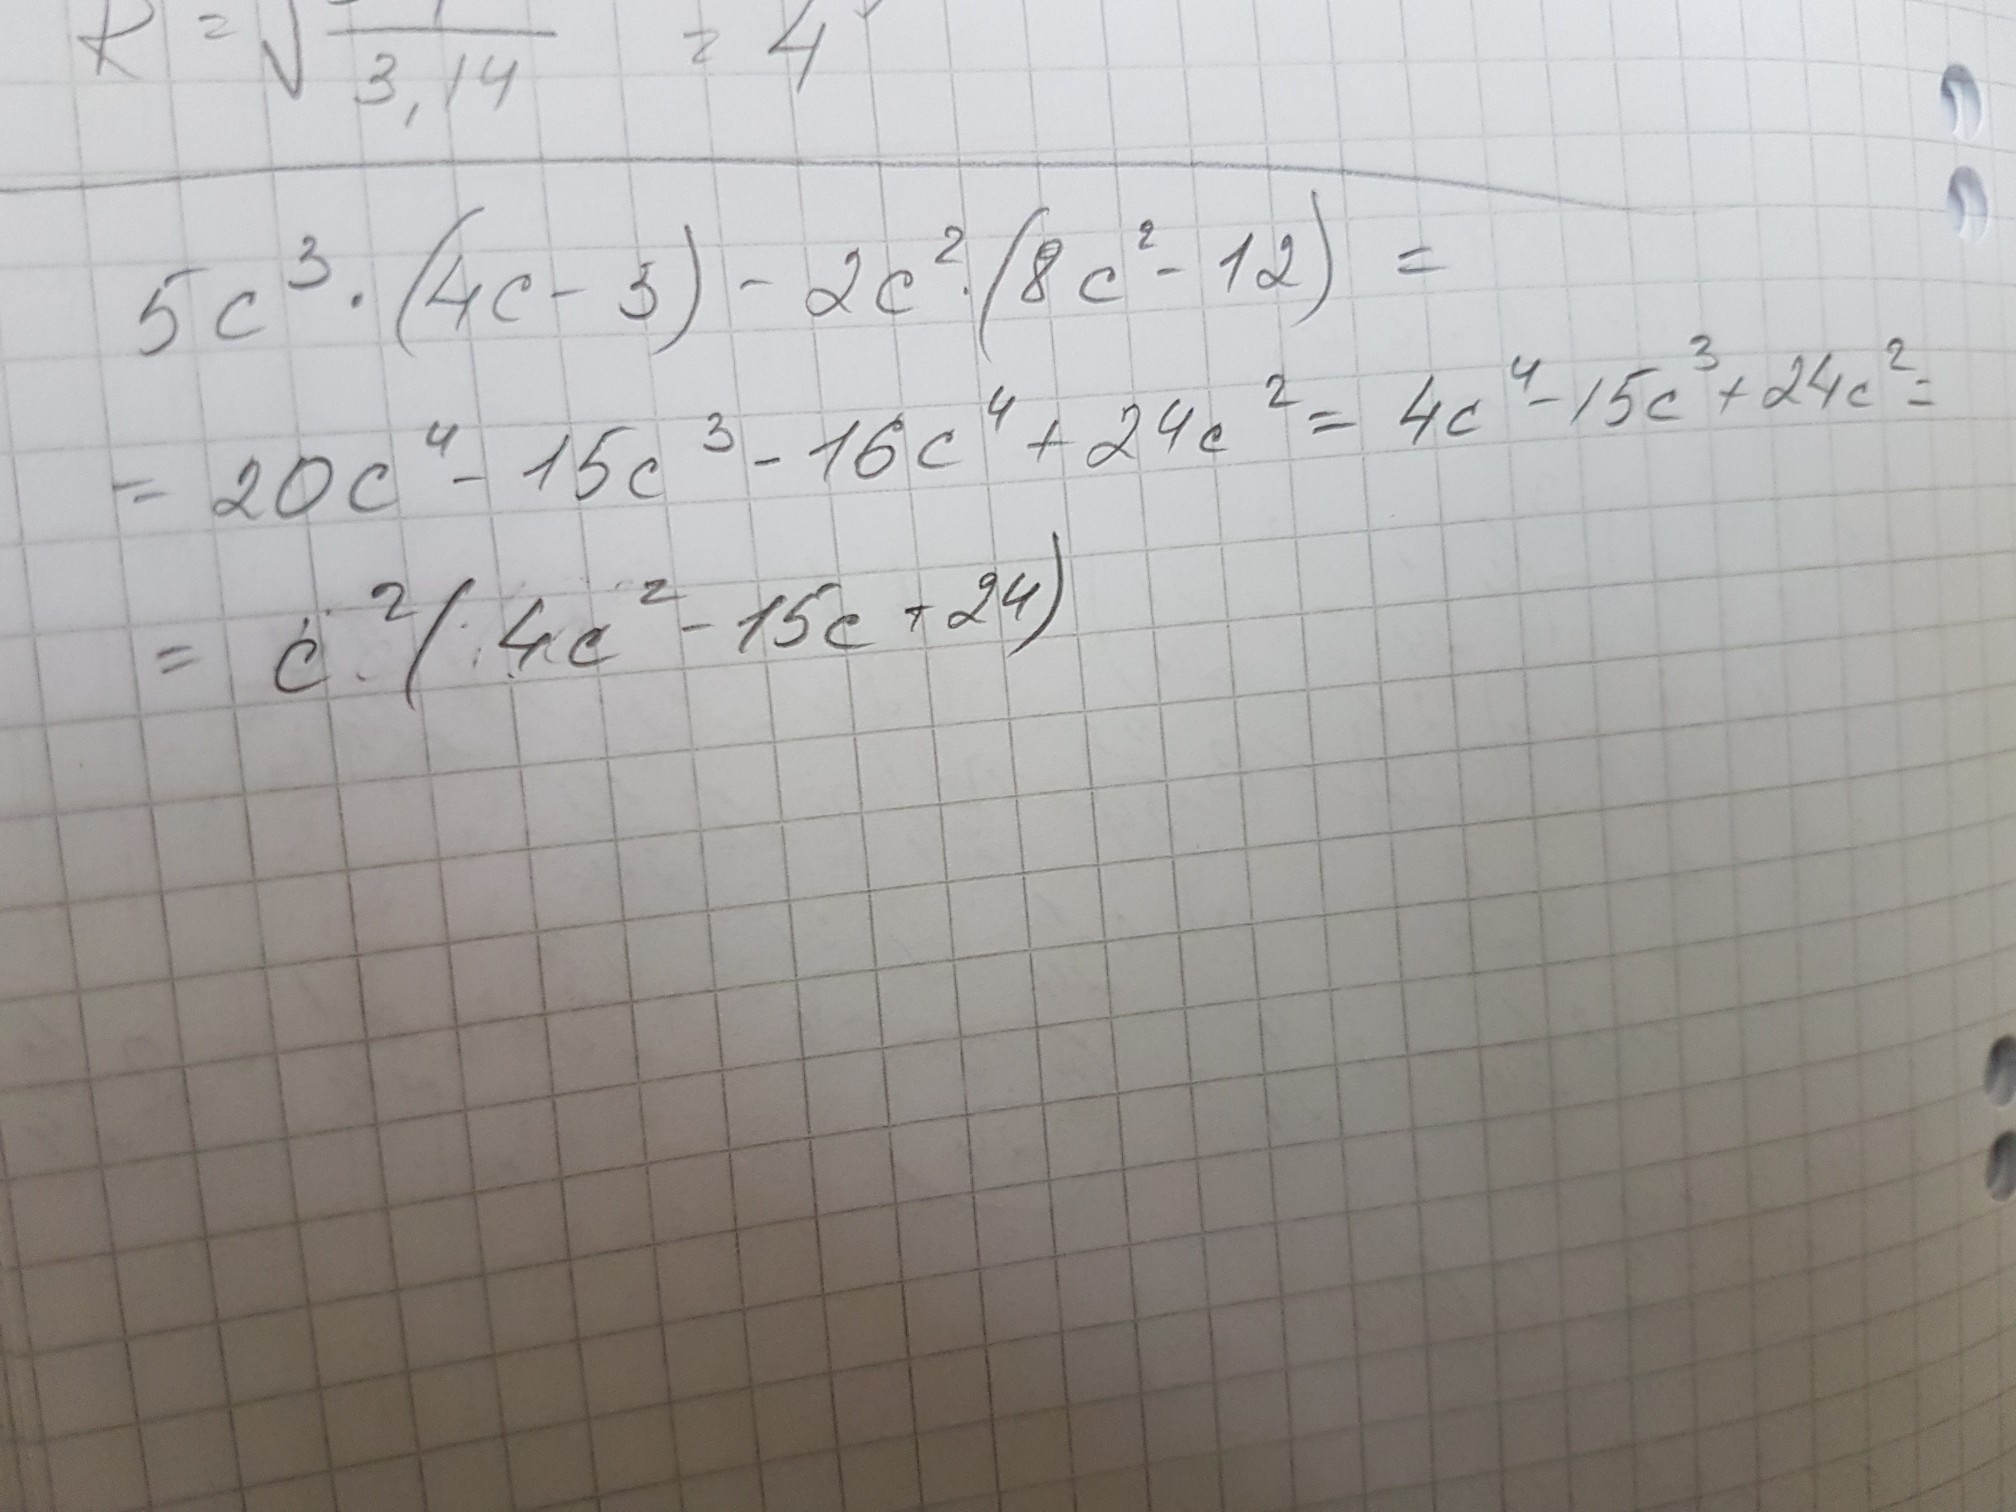 R = √ 3,14 = 4
5c³·(4c - 3) - 2c²·(8c² - 12) =
= 20c⁴ - 15c³ - 16c⁴ + 24c² = 4c⁴ - 15c³ + 24c² =
= c²(4c² - 15c + 24)